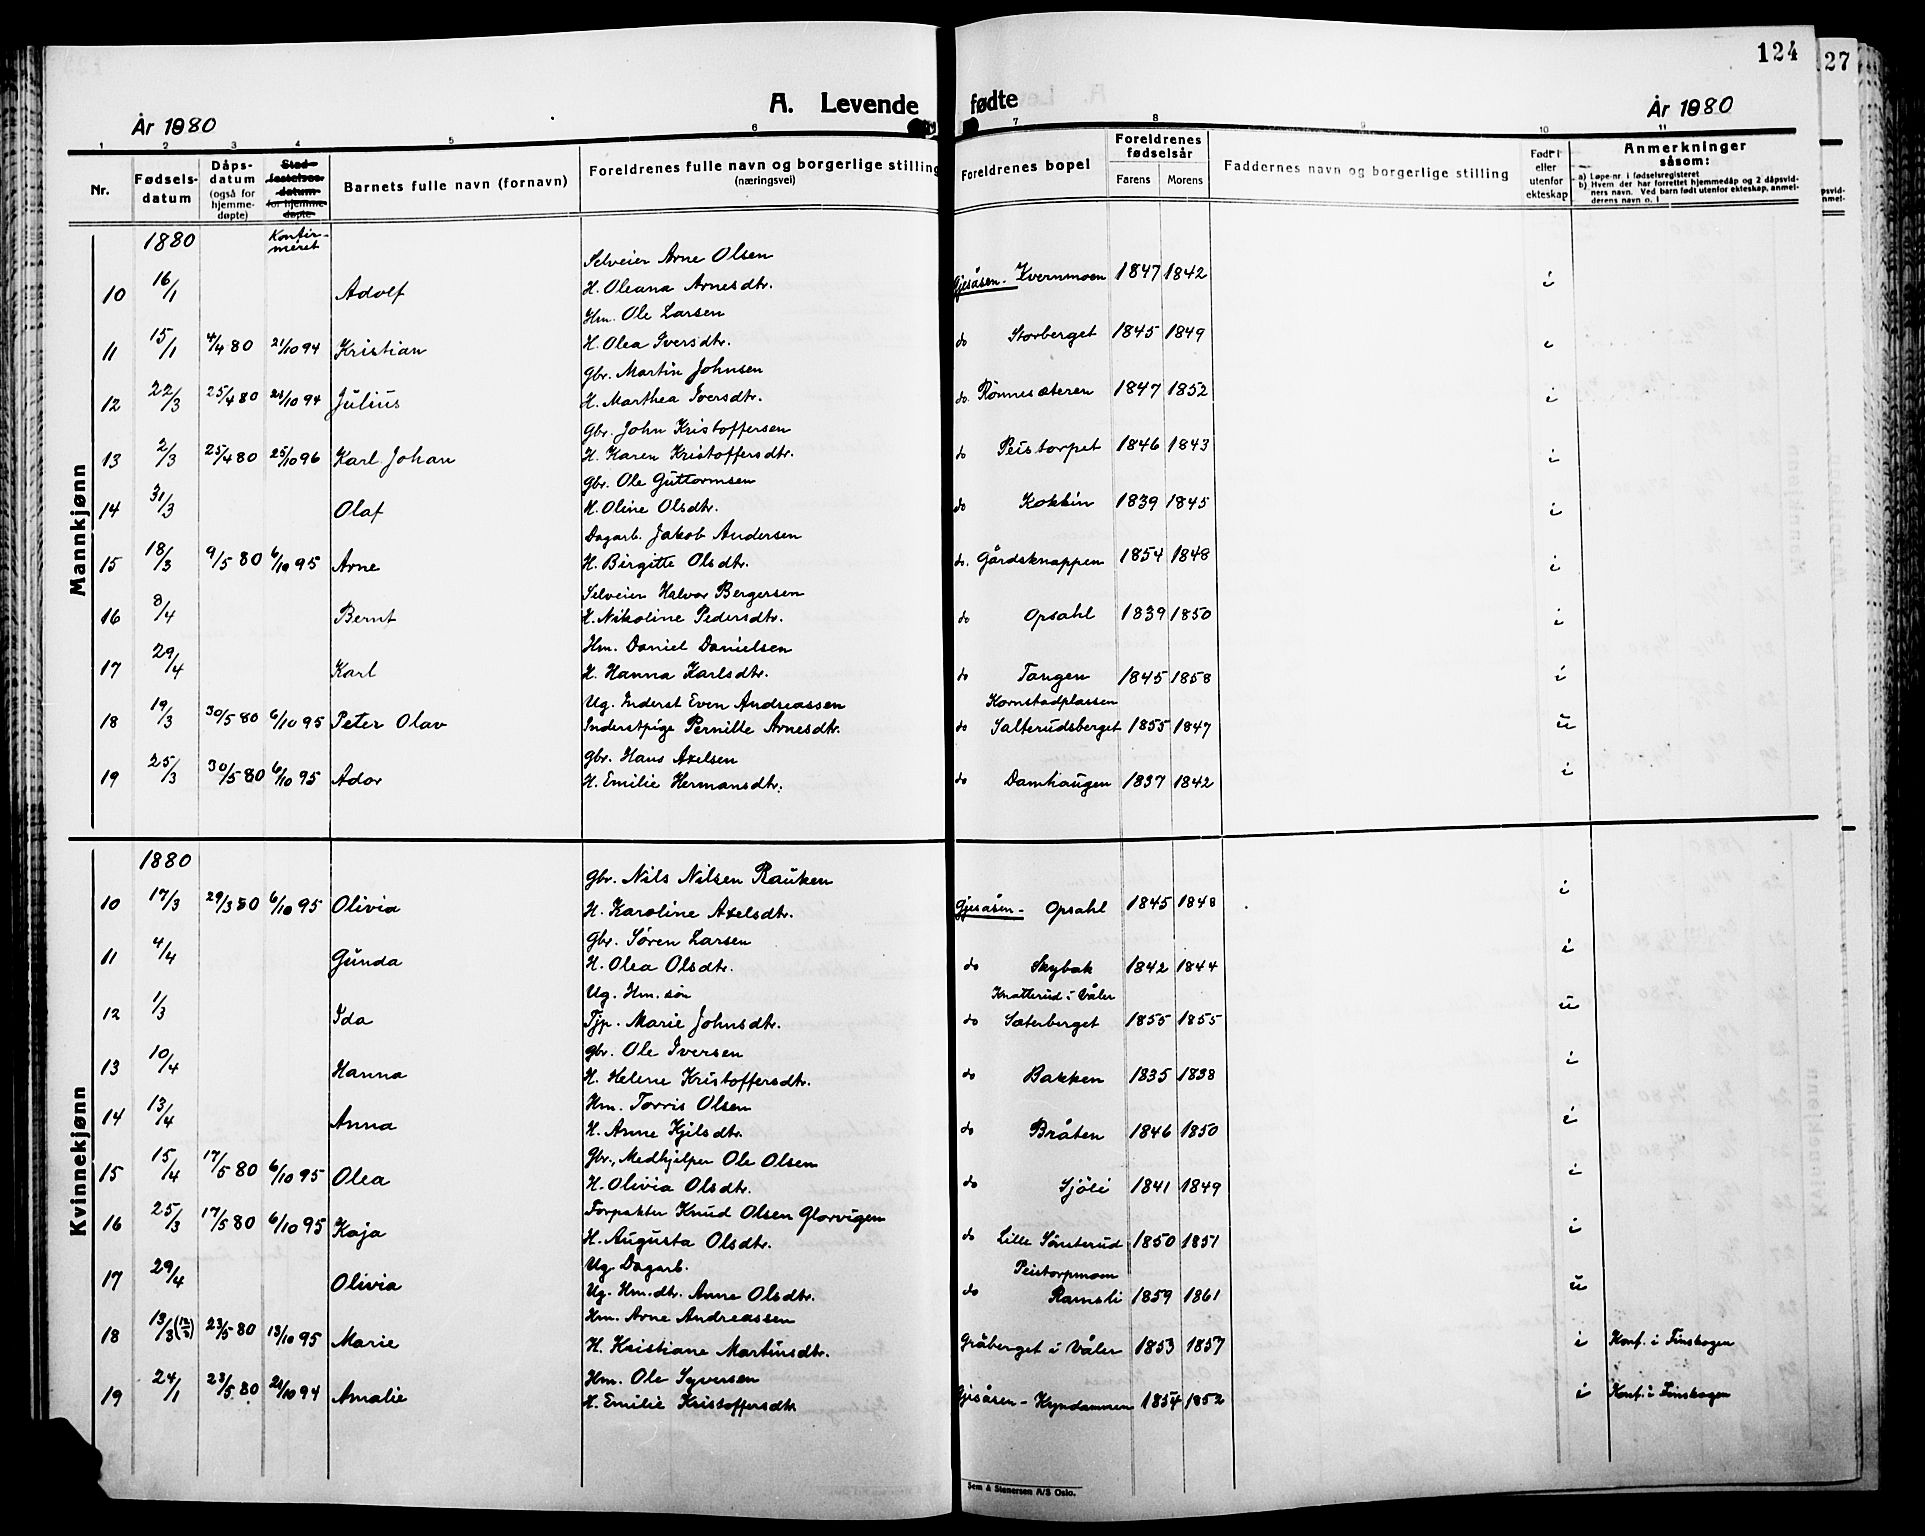 124
27
A. Levende fødte
År 1880
År 1880
1 2 3 4 5 6 7 8 9 10 11
Nr. Fødsels-datum Dåps-datum (også for hjemme-døpte) Stad-festelses-datum for hjemme-døpte Barnets fulle navn (fornavn) Foreldrenes fulle navn og borgerlige stilling (næringsvei) Foreldrenes bopel Foreldrenes fødselsår Farens Morens Faddernes navn og borgerlige stilling Født i eller utenfor ekteskap Anmerkninger såsom:
a) Løpe-nr. i fødselsregisteret
b) Hvem der har forrettet hjemmedåp og 2 dåpsvidners navn. Ved barn født utenfor ekteskap, anmelderens navn o. l
Mannkjønn
1880 Konfirmeret
Selveier Arne Olsen
10 16/1 Adolf H. Oleana Arnesdtr. Gjesåsen - Kvernmoen 1847 1842 i
Hm. Ole Larsen
11 15/1 4/4 80 21/10 94 Kristian H. Olea Iversdtr. do Storberget 1845 1849 i
Gbr. Martin Johnsen
12 22/3 25/4 80 21/10 94 Julius H. Marthea Iversdtr. do. Rönnesæteren 1847 1852 i
Gbr. John Kristoffersen
13 2/3 25/4 80 25/10 96 Karl Johan H. Karen Kristoffersdtr. do Peistorpet 1846 1843 i
Gbr. Ole Guttormsen
14 31/3 Olaf H. Oline Olsdtr. do Kokkin 1839 1845 i
Dagarb. Jakob Andersen
15 18/3 9/5 80 6/10 95 Arne H. Birgitte Olsdtr. do. Gårdsknappen 1854 1848 i
Selveier Halvor Bergersen
16 8/4 Bernt H. Nikoline Pedersdtr. do Opsahl 1839 1850 i
Hm. Daniel Danielsen
17 29/4 Karl H. Hanna Karlsdtr. do Tangen 1845 1858 i
Ug. Inderst Even Andreassen Kornstadplassen
18 19/3 30/5 80 6/10 95 Peter Olav Inderstpige Pernille Arnesdtr. do Salterudsberget 1855 1847 u
Gbr. Hans Axelsen
19 25/3 30/5 80 6/10 95 Ador H. Emilie Hermansdtr. do Damhaugen 1837 1842 i
Kvinnekjønn
1880
Gbr. Nils Nilsen Rauken
10 17/3 29/3 80 6/10 95 Olivia H. Karoline Axelsdtr. Gjesåsen - Opsahl 1845 1848 i
Gbr. Søren Larsen
11 4/4 Gunda H. Olea Olsdtr. do Skybak 1842 1844 i
Ug. Hm. søn Knatterud i Våler
12 1/3 Ida Tjp. Marie Johnsdtr. do Sæterberget 1855 1855 u
Gbr. Ole Iversen
13 10/4 Hanna H. Helene Kristoffersdtr. do Bakken 1835 1838 i
Hm. Torris Olsen
14 13/4 Anna H. Anne Kjelsdtr. do Bråten 1846 1850 i
Gbr., Medhjelper Ole Olsen
15 15/4 17/5 80 6/10 95 Olea H. Olivia Olsdtr. do Sjöli 1841 1849 i
Forpakter Knud Olsen Glorvigen
16 25/3 17/5 80 6/10 95 Kaja H. Augusta Olsdtr. do Lille Sönsterud 1850 1851 i
Ug. Dagarb. Peistorpmoen
17 29/4 Olivia Ug. Hm.dtr. Anne Olsdtr. do Ramsli 1859 1861 u
Hm. Arne Andreassen
18 13/3 23/5 80 13/10 95 Marie H. Kristiane Martinsdtr. Gråberget i Våler 1853 1857 i Konf. i Finskogen
Hm. Ole Syversen
19 24/1 23/5 80 21/10 94 Amalie H. Emilie Kristoffersdtr Gjesåsen - Kyndammen 1854 1852 i Konf. i Finskogen
Sem & Stenersen A/S Oslo.